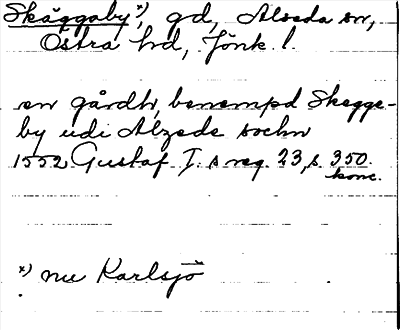 Skäggaby *), gd, Alseda sn,
Östra hd, Jönk. l.
en gårdh, benempd Skegge-
by udi Alzede sochn
1552 Gustaf I. s reg. 23, s. 350.
konc.
*) nu Karlsjö